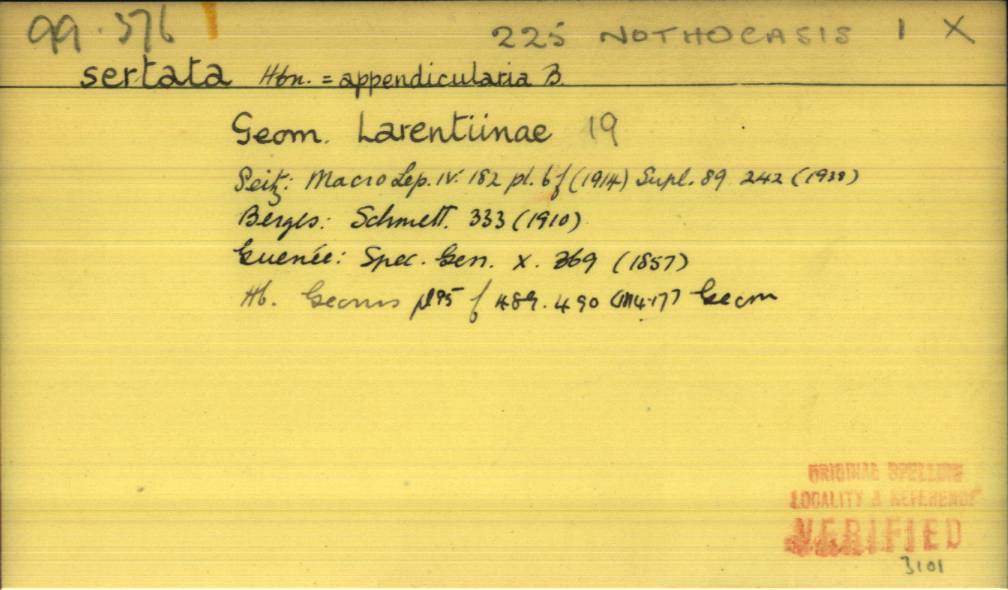 99.376
225 NOTHOCASIS 1 X
sertata Hbn. = appendicularia B.
Geom. Larentiinae 19
Seitz: Macro Lep. IV. 182 pl. 6 f (1914) Supl. 89. 242 (1938)
Berges: Schmett. 333 (1910)
Guenée: Spec. Gen. X. 369 (1857)
Hb. Geoms pl 95 f 489. 490 Geom
ORIGINAL SPELLING
LOCALITY & REFERENCE
VERIFIED
3101